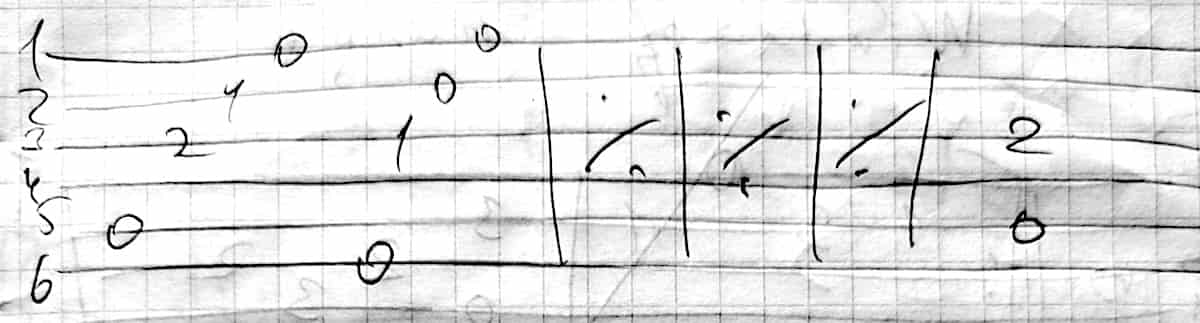 1 0 0
2 1 0
3 2 1 ٪ ٪ ٪ 2
4
5 0 0
6 0